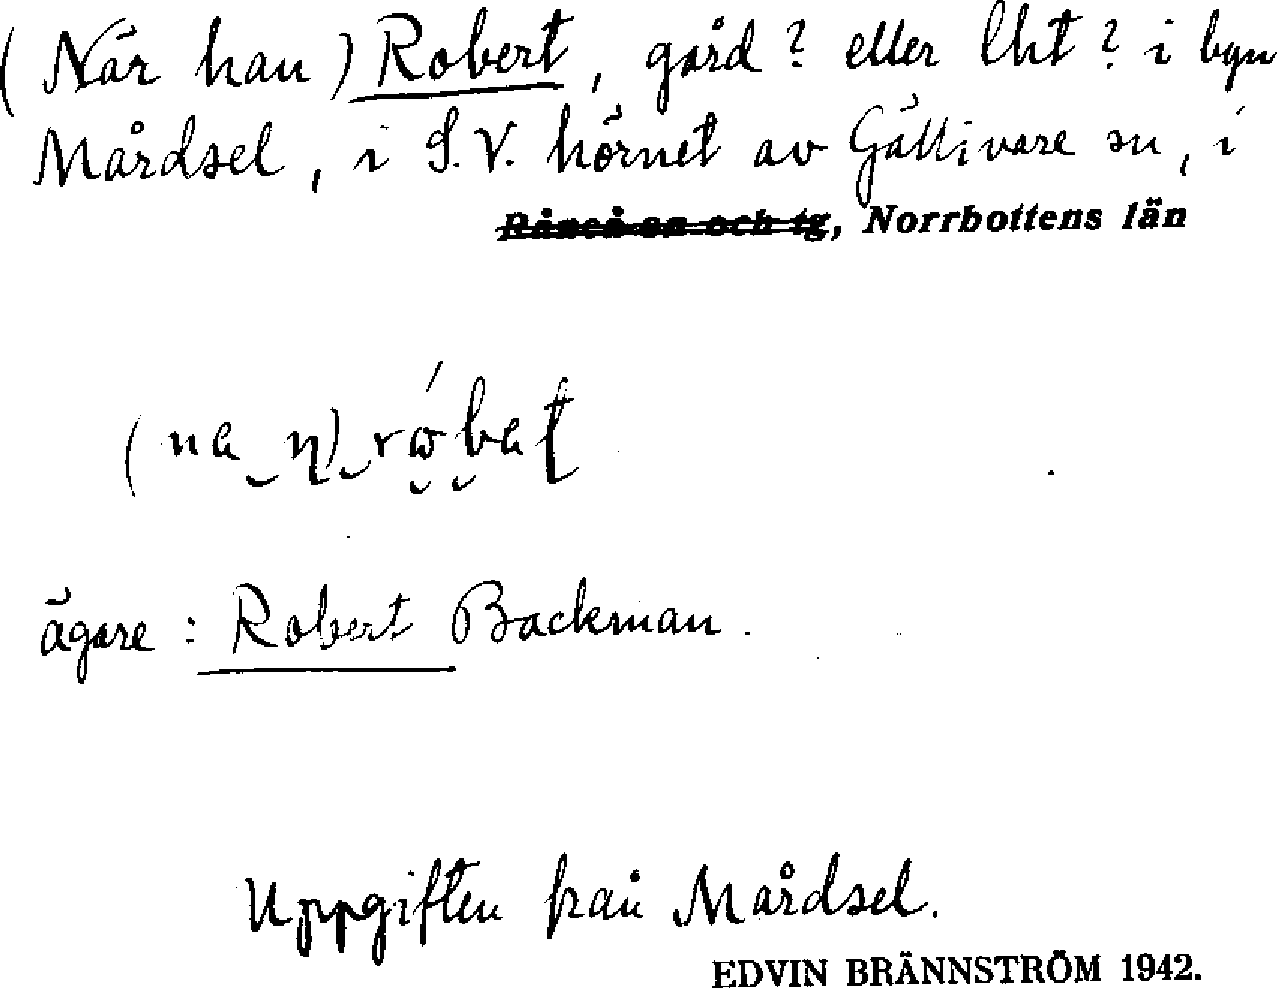 (När han) Robert, gård? eller lht? i byn
Mårdsel, i S.V. hörnet av Gällivare sn, i
Råneå sn och tg, Norrbottens län
ägare: Robert Backman.
Uppgiften från Mårdsel.
EDVIN BRÄNNSTRÖM 1942.